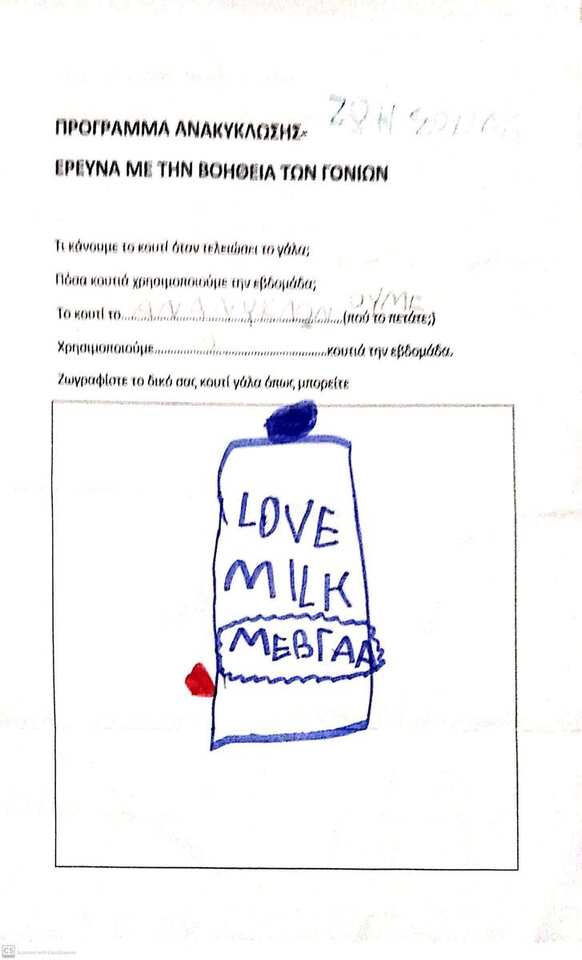 ΠΡΟΓΡΑΜΜΑ ΑΝΑΚΥΚΛΩΣΗΣ-
ΕΡΕΥΝΑ ΜΕ ΤΗΝ ΒΟΗΘΕΙΑ ΤΩΝ ΓΟΝΙΩΝ
Τι κάνουμε το κουτί όταν τελειώσει το γάλα;
Πόσα κουτιά χρησιμοποιούμε την εβδομάδα;
Το κουτί το.....................................................(πού το πετάτε;)
Χρησιμοποιούμε.........................................κουτιά την εβδομάδα.
Ζωγραφίστε το δικό σας κουτί γάλα όπως μπορείτε
LOVE
MILK
ΜΕΒΓΑΛ
CS Scanned with CamScanner